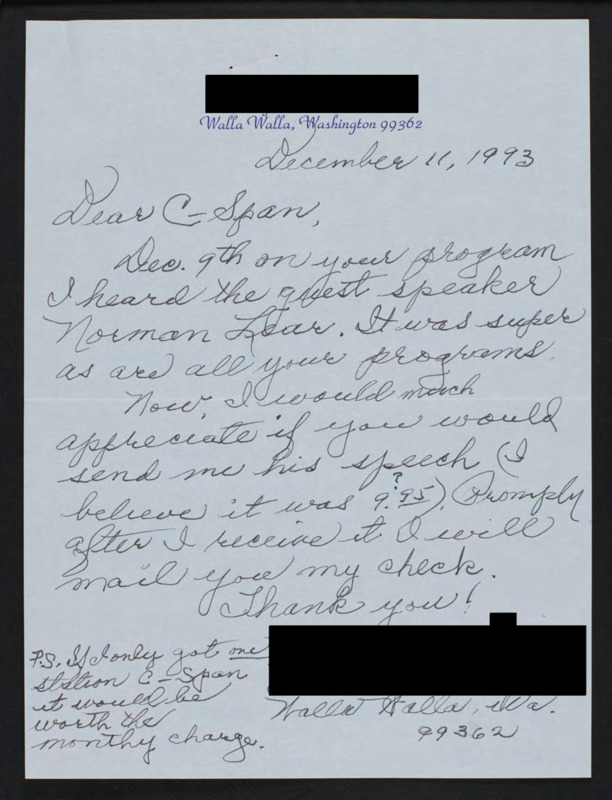 Walla Walla, Washington 99362
December 11, 1993
Dear C-Span,
Dec. 9th on your program
I heard the guest speaker
Norman Lear. It was super
as are all your programs.
Now, I would much
appreciate if you would
send me his speech (I
believe it was 9.95?). Promply
after I receive it I will
mail you my check.
Thank you!
P.S. If I only got one
station C-Span
it would be
worth the
monthy charge.
Walla Walla, Wa.
99362